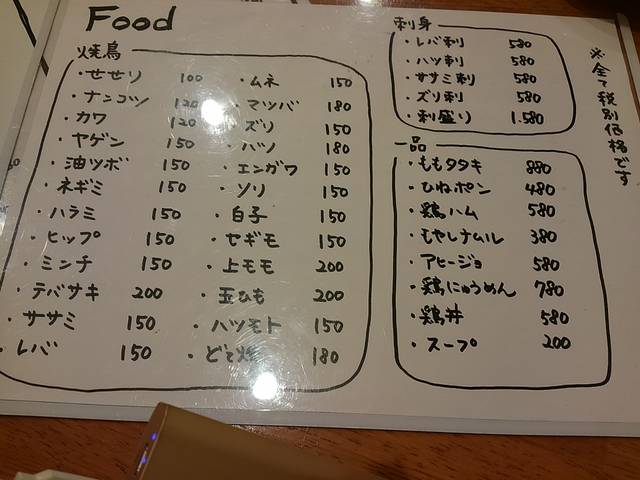 Food
焼鳥
・せせり 100
・ナンコツ 120
・カワ 120
・ヤゲン 150
・油ツボ 150
・ネギミ 150
・ハラミ 150
・ヒップ 150
・ミンチ 150
・テバサキ 200
・ササミ 150
・レバ 150
・ムネ 150
・マツバ 180
・ズリ 150
・ハツ 180
・エンガワ 150
・ソリ 150
・白子 150
・セギモ 150
・上モモ 200
・玉ひも 200
・ハツモト 150
・どて焼 180
刺身
・レバ刺 580
・ハツ刺 580
・ササミ刺 580
・ズリ刺 580
・刺盛り 1.580
一品
・ももタタキ 880
・ひねポン 480
・鶏ハム 580
・もやしナムル 380
・アヒージョ 580
・鶏にゅうめん 780
・鶏丼 580
・スープ 200
※全て税別価格です